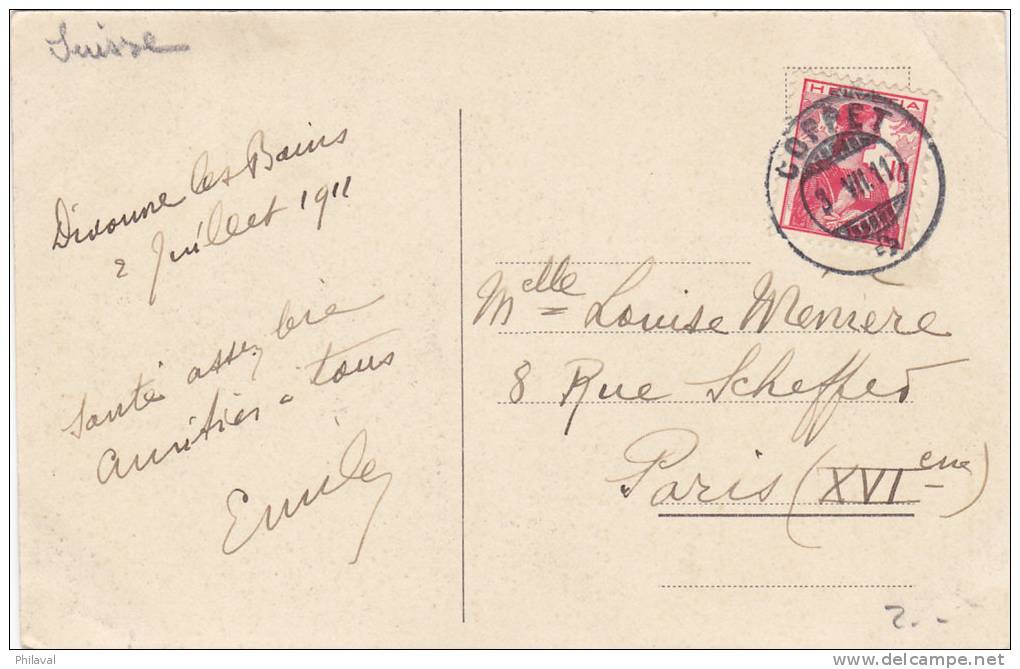 Suisse
Divonne les Bains
2 Juillet 1911
Santé assez bie
amitiés à tous
Emile
HELVETIA
COPPET
VII.11
Melle Louise Meniere
8 Rue Scheffer
Paris (XVIeme)
2.-
Philaval
delcampe.net